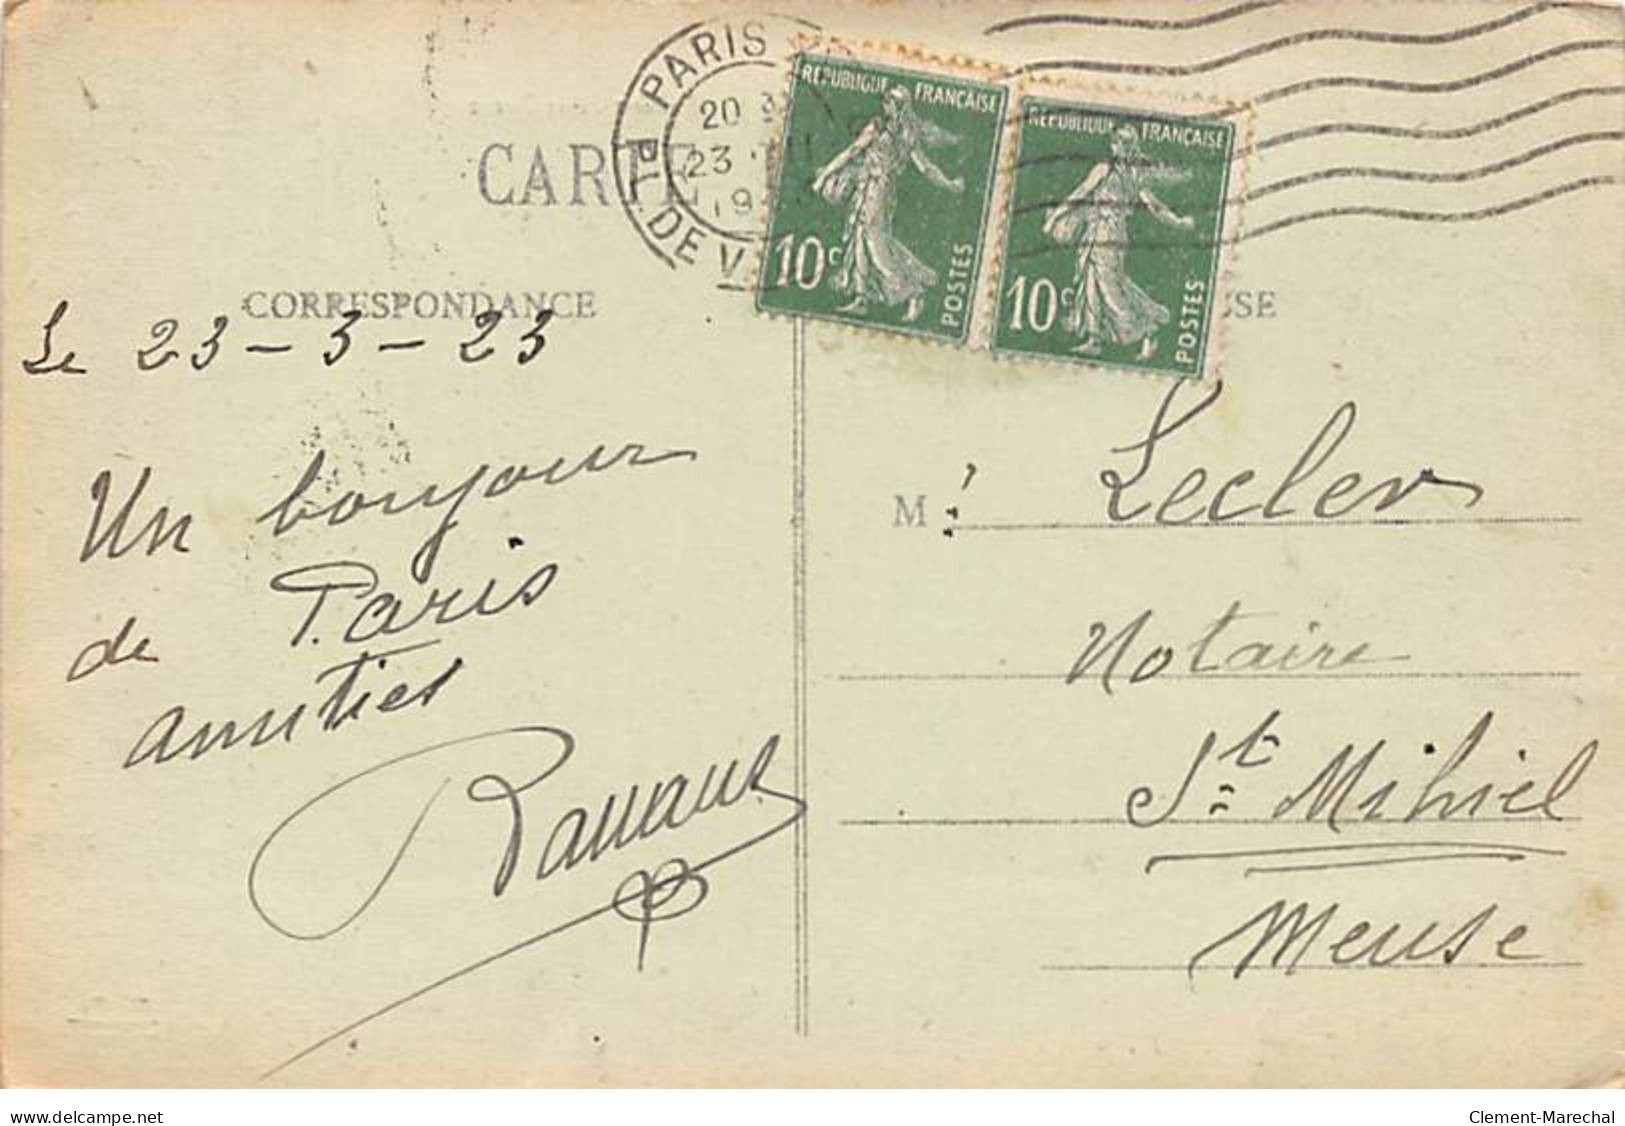 PARIS
20 3
23 III
19
DE V
REPUBLIQUE FRANÇAISE
10c
POSTES
REPUBLIQUE FRANÇAISE
10c
POSTES
CARTE
CORRESPONDANCE
Le 23-3-23
Un bonjour
de Paris
amitiés
M. Lecler
Notaire
St. Mihiel
Meuse
www.delcampe.net
Clement-Marechal